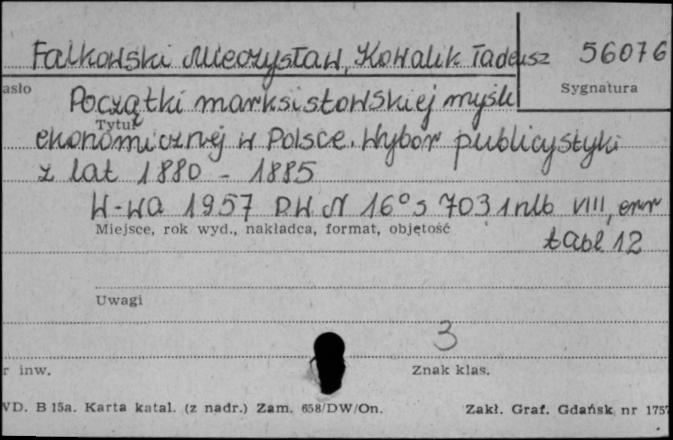 Falkowski Mieczysław, Kowalik Tadeusz 56076
asło Sygnatura
Początki marksistowskiej myśli
Tytuł
ekonomicznej w Polsce. Wybór publicystyki
z lat 1880 - 1885
W-wa 1957 PWN 16° s 703 1 nlb VIII, err
Miejsce, rok wyd., nakładca, format, objętość
tabl 12
Uwagi
3
r inw. Znak klas.
WD. B 15a. Karta katal. (z nadr.) Zam. 658/DW/On. Zakł. Graf. Gdańsk nr 1757